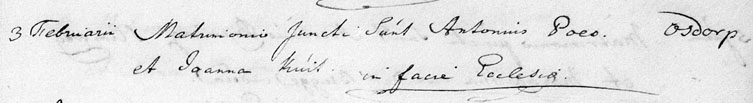 3 Februarii Matrimonio juncti Sunt Antonius Poeo. Osdorp
et Joanna Kuit. in facie Ecclesiæ.